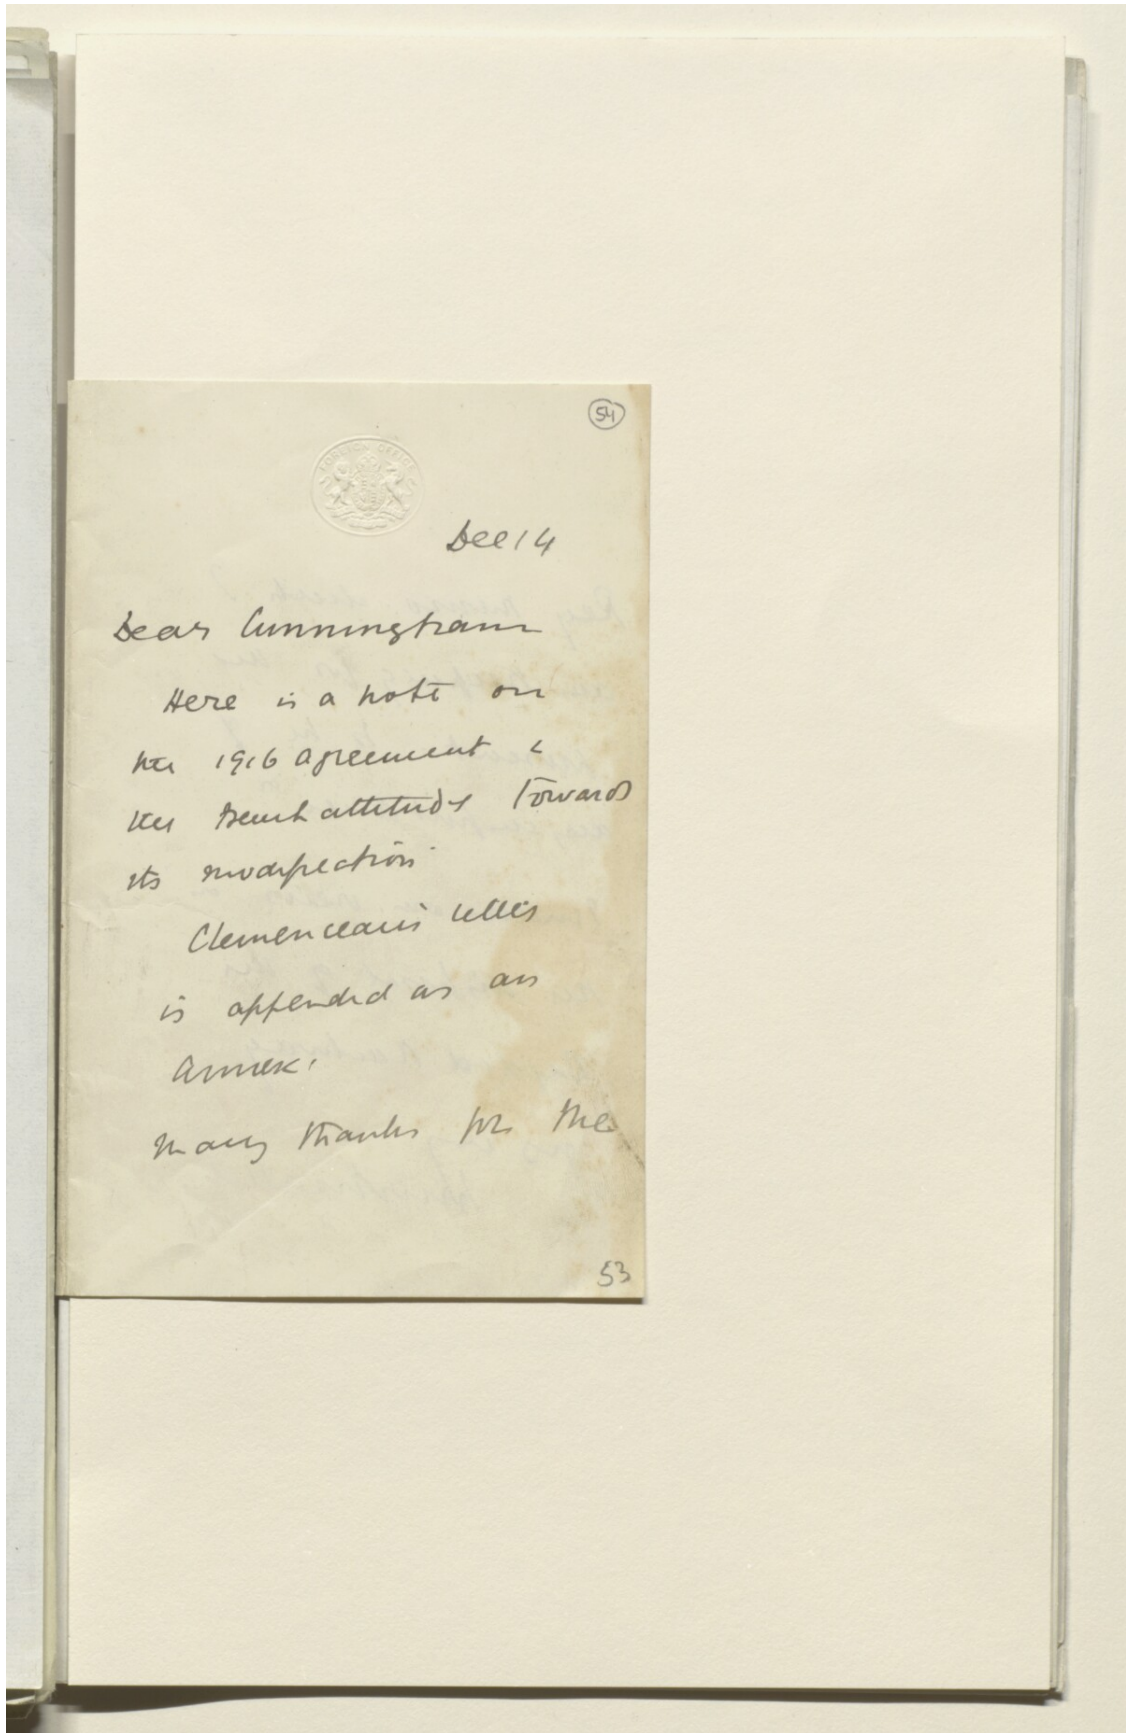 54
FOREIGN OFFICE
Dec 14
Dear Cunningham
Here is a note on
the 1916 agreement &
the French attitude towards
its modification
Clemenceau's letter
is appended as an
Annex.
Many thanks for the
53